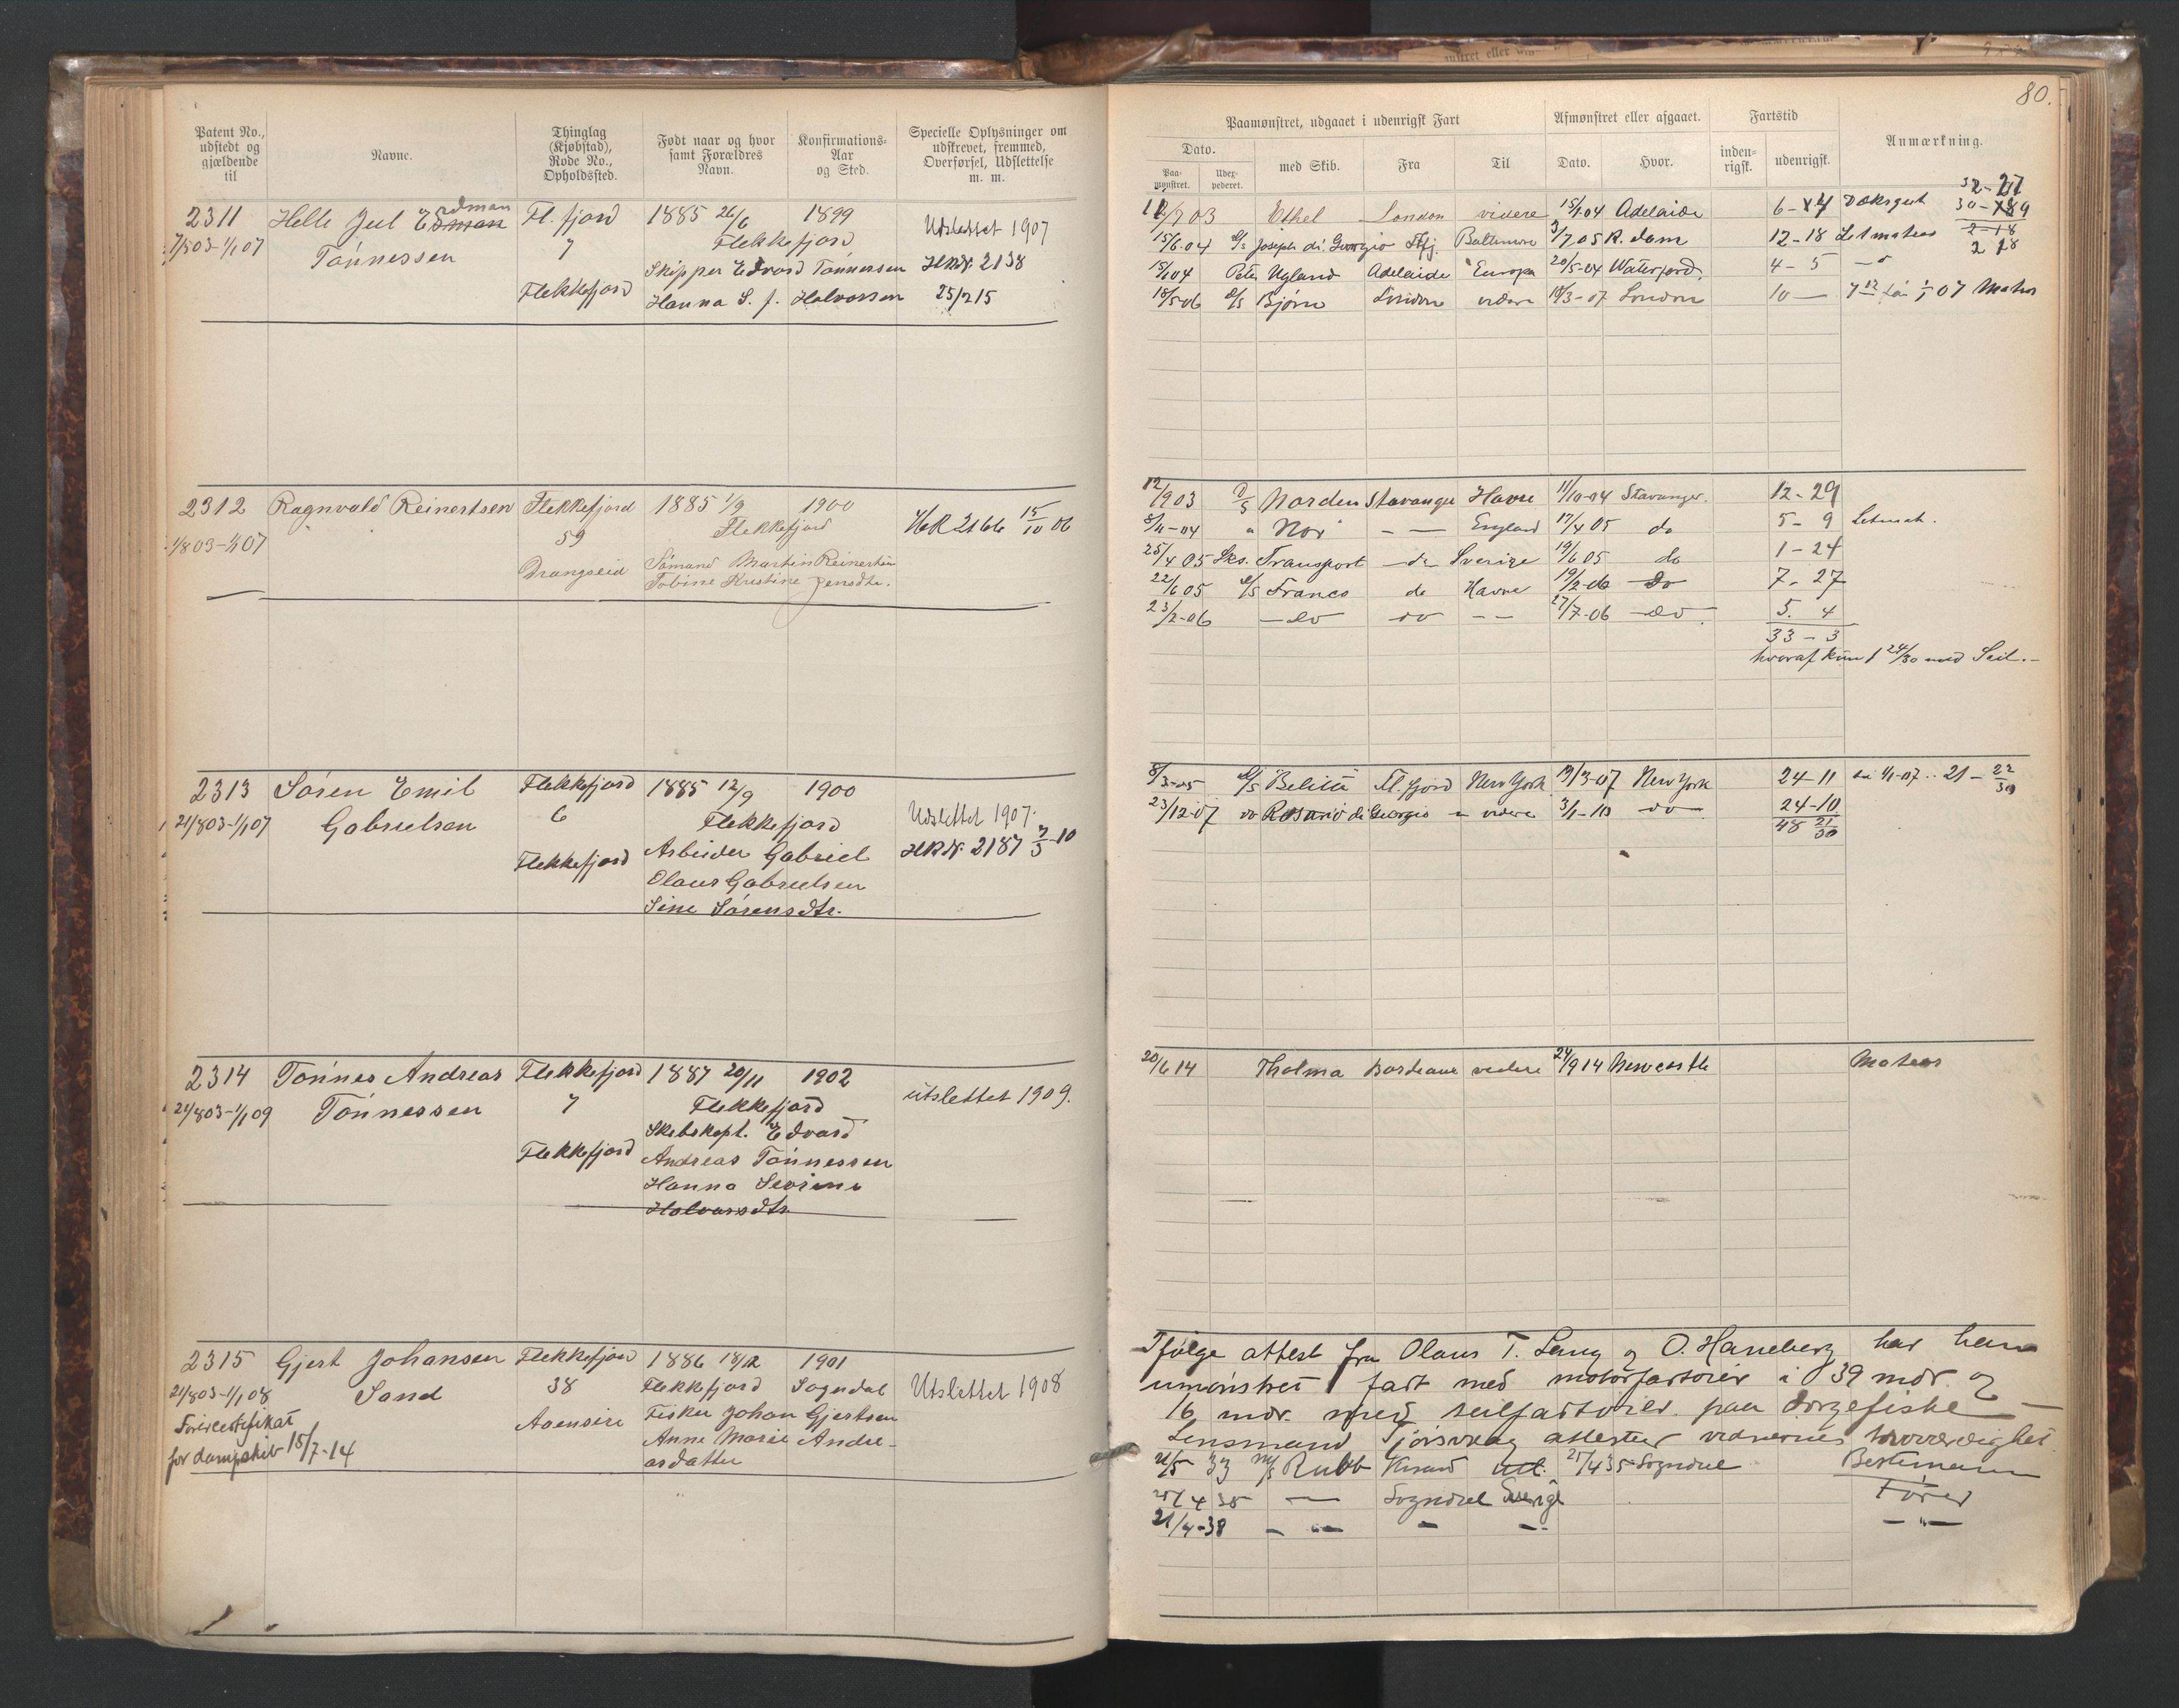 Patent No., udstedt og gjældende til
Navne.
Thinglag (Kjøbstad), Rode No., Opholdssted.
Født naar og hvor samt Forældres Navn.
Konfirmations-Aar og Sted.
Specielle Oplysninger om udskrevet, fremmed, Overførsel, Udslettelse m. m.
2311 Helle Jul Edman Fl. fjord 1885 26/6 1899 Udslettet 1907
7/503-1/107 Tönnessen 7 Flekkefjord
Skipper Edvard Tönnessen HRNr. 2138
Flekkefjord Hanna S. f. Halvorsen 25/215
2312 Ragnvald Reinertsen Flekkefjord 1885 1/9 1900
1/803-1/107 59 Flekkefjord HR 2166 15/10 06
Drangseid Sömand Martin Reinertsen
Tobine Kristine Jensdtr.
2313 Sören Emil Flekkefjord 1885 12/9 1900
21/803-1/107 Gabrielsen 6 Flekkefjord Udslettet 1907.
Flekkefjord Arbeider Gabriel HRNr. 2187 7/3-10
Olaus Gabrielsen
Sine Sörensdtr.
2314 Tönnes Andreas Flekkefjord 1887 20/11 1902
21/803-1/109 Tönnessen 7 Flekkefjord utslettet 1909.
Skibskapt. Edvard
Flekkefjord Andreas Tönnessen
Hanna Sevrine
Halvorsdtr.
2315 Gjert Johansen Flekkefjord 1886 18/12 1901
21/803-1/108 Sand 38 Flekkefjord Sogndal Utslettet 1908
Förercertifikat Aaensire Fisker Johan Gjertsen
for dampskib 15/7-14 Anne Marie Andre-
asdatter
80.
Paamønstret, udgaaet i udenrigsk Fart
Afmønstret eller afgaaet.
Fartstid
Anmærkning.
Dato.
med Skib.
Fra
Til
Dato.
Hvor.
inden-rigsk.
udenrigsk.
Paa-mønstret.
Udex-pederet.
Ethel London videre 15/1 04 Adelaide
15/6.04 Joseph di Georgio Baltimore 3/7 05 R. dam 12-18 Letmatros
15/104 Peter Ugland Adelaide Europa 20/5-04 Waterford. 4-5
18/506 D/S Bjørn London videre 18/3-07 London 10 —
12/903 D/S Norden Stavanger Havre 11/10-04 Stavanger. 12-29
8/11-04 " Nor — England 17/4 05 do 5-9 Letmat.
25/4 05 Sks. Transport — do Sverige 19/6 05 do 1-24
22/6 05 D/S Franco do Havre 19/2-06 do 7-27
23/2-06 — do do — — 27/7-06 — do 5. 4
33-3
hvoraf kun 1 24/30 med Seil.-
8/3-05 D/S Belitá Fl. fjord New York 19/3-07 New York 24-11 21-22/30
23/12 07 do Rosario di Georgio videre 3/1-10 — do 24-10
48 21/30
20/6 14 Tholma Bordeaux videre 24/9 14 Newcastle Matros
Ifølge attest fra Olaus T. Lang og O. Haneberg har han
umönstret fart med motorfartöier i 39 mdr. og
16 mdr. med seilfartöier paa dorgefiske —
Lensmand Tjorsvaag attester vidnernes troværdighet.
21/5 33 M/S Rubb Krsand utl. 25/4 35 Sogndal Bestmann
25/4 35 — Sogndal Sverige Fører
21/4-38 — " — — — — " —